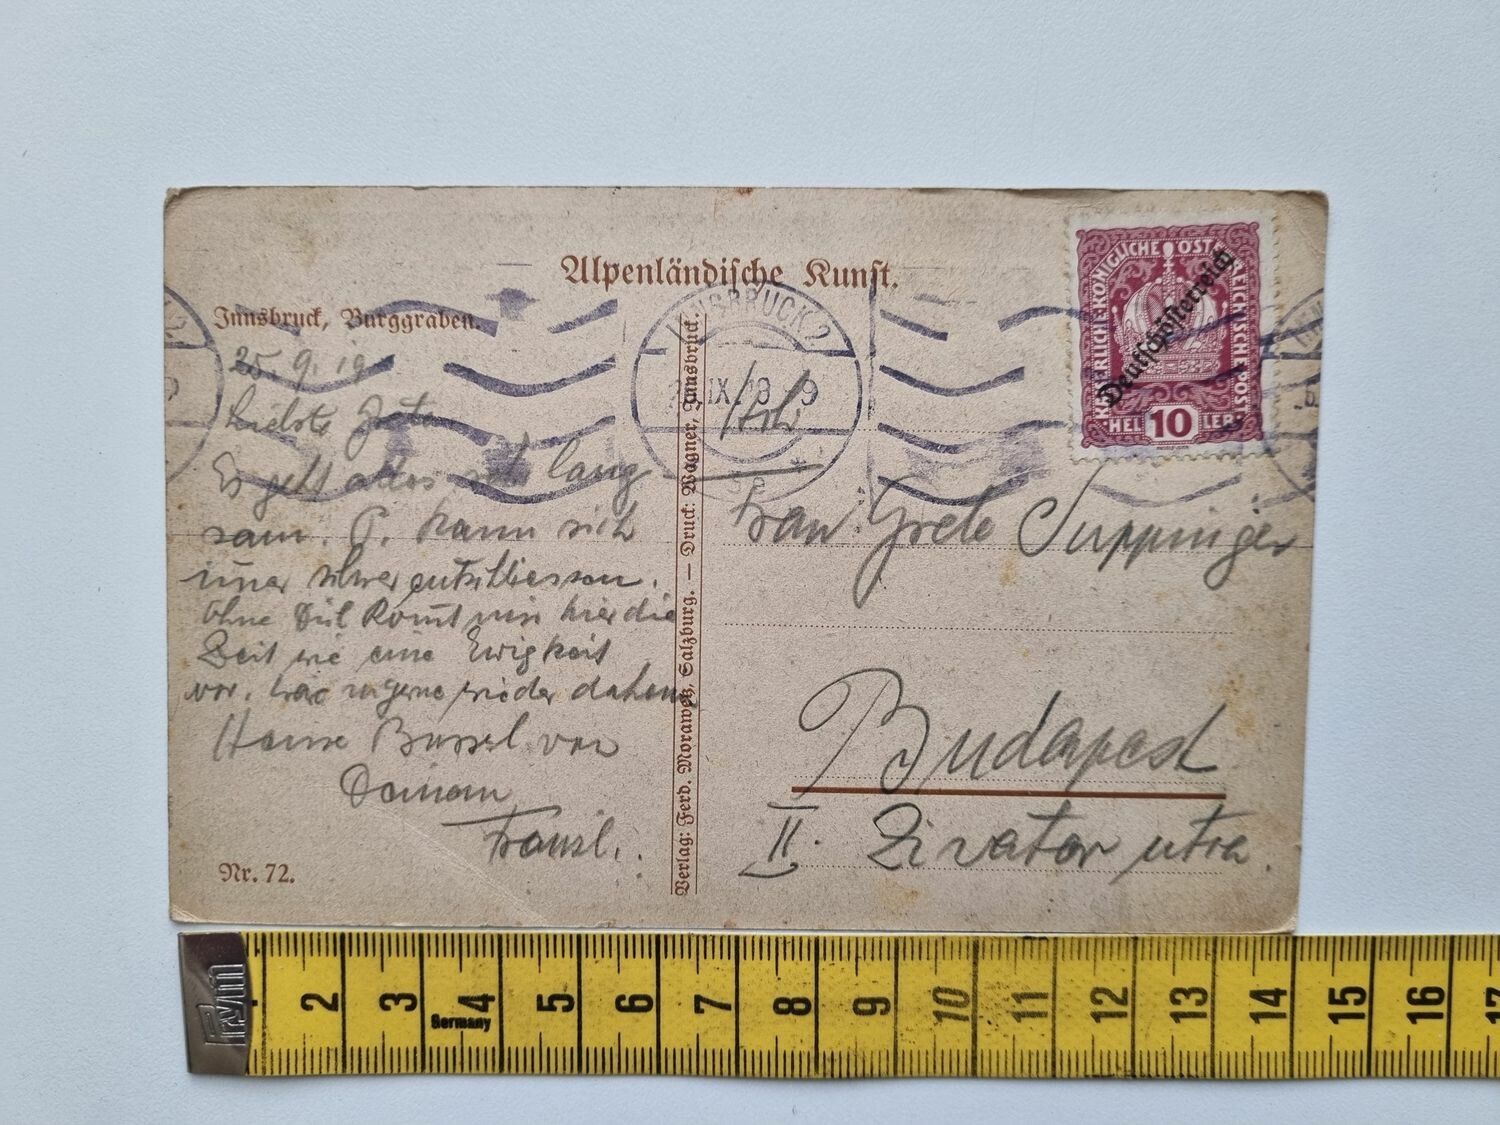 Alpenländische Kunst.
Innsbruck, Burggraben.
25. 9. 19
Liebste Grete
Es geht alles sehr lang
sam. P. kann sich
imer schwer entschliessen.
Ohne Dich komt mir hier die
Zeit wie eine Ewigkeit
vor. wäre gerne wieder daheim
Bussel von
Deinem
Franzl.
Nr. 72.
Verlag: Ferd. Morawetz, Salzburg. — Druck: Wagner, Innsbruck.
INNSBRUCK 2
IX. 18 - 9
KAISERLICHE KÖNIGLICHE ÖSTERREICHISCHE POST
Deutschösterreich
HELLER
10
Frau Grete Suppinger
Budapest
II. Zivatar utca.
Prym
Germany
2 3 4 5 6 7 8 9 10 11 12 13 14 15 16 17